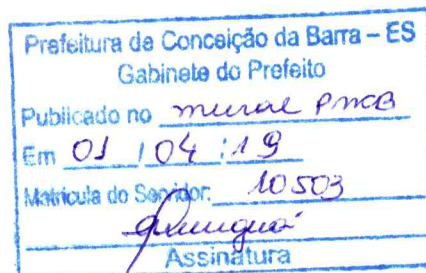 Prefeitura de Conceição da Barra – ES
Gabinete do Prefeito
Publicado no mural PMCB
Em 01 / 04 / 19
Matrícula do Servidor: 10503
Assinatura